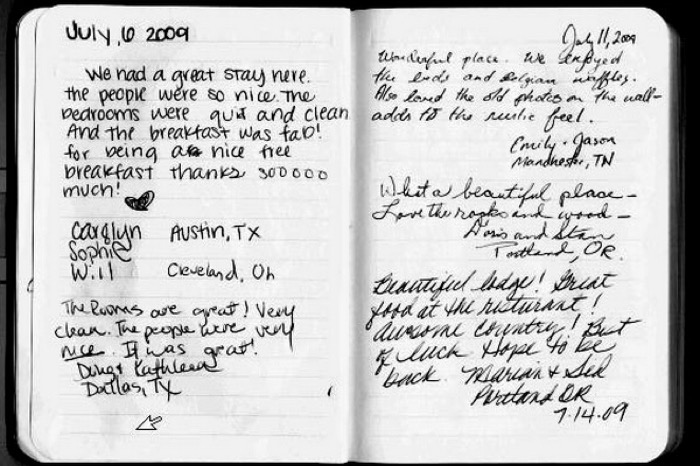 July, 6 2009
We had a great stay here.
the people were so nice. The
bedrooms were quit and clean
And the breakfast was fab!
for being a nice free
breakfast thanks sooooo
much!
Carolyn Austin, TX
Sophie
Will Cleveland, Oh
The Rooms are great! Very
clean. The people were very
nice. It was great!
Doug & Kathleen
Dallas, TX
July 11, 2009
Wonderful place. We enjoyed
the beds and Belgian waffles.
Also loved the old photos on the wall-
adds to the rustic feel.
Emily + Jason
Manchester, TN
What a beautiful place -
Love the rocks and wood -
Doris and Stan
Portland, OR.
Beautiful lodge! Great
food at the risturant!
Awsome country! Best
of luck Hope to be
back. Marian & Sid
Portland OR
7-14-09